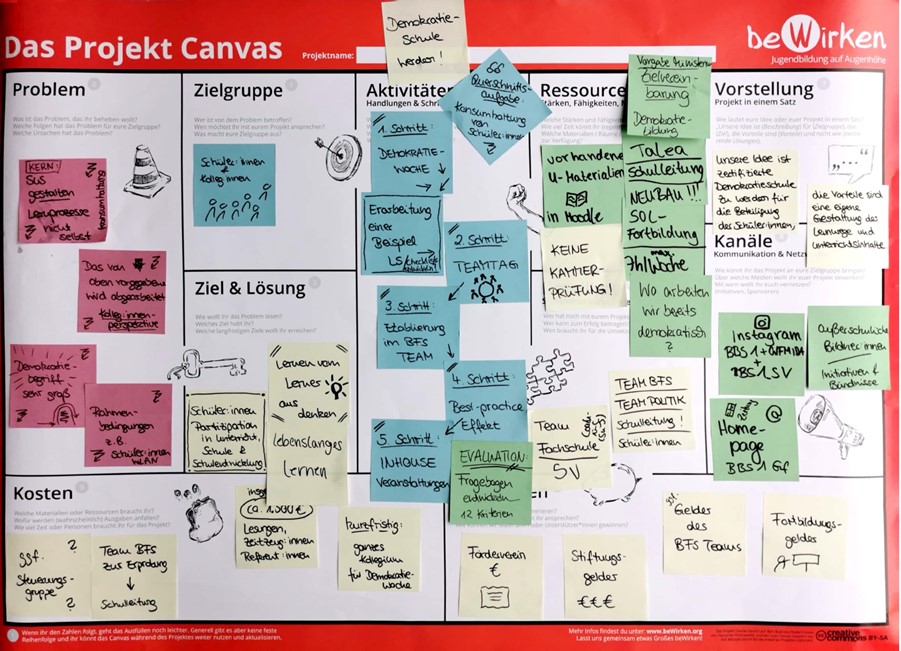 Das Projekt Canvas
Projektname:
Demokratie-
Schule
werden!
beWirken
Jugendbildung auf Augenhöhe
Problem
Was ist das Problem, das ihr beheben wollt?
Welche Folgen hat das Problem für eure Zielgruppe?
Welche Ursachen hat das Problem?
KERN:
SuS
gestalten
Lernprozesse
nicht
selbst
Das von
oben vorgegebene
wird abgearbeitet
Kolleg:innen-
perspektive
Demokratie-
begriff
sehr groß
Rahmen-
bedingungen
z.B.
Schüler:innen
WLAN
Zielgruppe
Wer ist von dem Problem betroffen?
Wen möchtet ihr mit eurem Projekt ansprechen?
Was macht eure Zielgruppe aus?
Schüler:innen
Kolleg:innen
Ziel & Lösung
Wie wollt ihr das Problem lösen?
Welches Ziel habt ihr?
Welche langfristigen Ziele wollt ihr erreichen?
Schüler:innen
Partizipation
in Unterricht,
Schule &
Schulentwicklung
Lernen vom
Lerner
aus
denken
lebenslanges
Lernen
Aktivitäten
Querschnitts-
aufgabe:
Konsumhaltung
von
Schüler:innen
1. Schritt:
DEMOKRATIE-
WOCHE
Erarbeitung
einer
Beispiel
LS
2. Schritt:
TEAMTAG
3. Schritt:
Etablierung
im BFS
TEAM
4. Schritt:
Best-practice
Effekt
5. Schritt:
INHOUSE
Veranstaltungen
EVALUATION:
Fragebogen
entwickeln
12 Kriterien
Ressource
vorhandene
U-Materialien
in Moodle
KEINE
KAMMER-
PRÜFUNG!
Vorgabe Ministerium
Zielverein-
barung
Demokratie-
bildung
TaLea
Schulleitung
NEUBAU!!!
SOL-
Fortbildung
Wo arbeiten
wir bereits
demokratisch
?
Team
Fachschule
SV
TEAM BFS
TEAM POLITIK
Schulleitung!
Schüler:innen
Vorstellung
Projekt in einem Satz
unsere Idee ist
zertifizierte
Demokratieschule
zu werden für
die Beteiligung
der Schüler:innen,
die Vorteile sind
eine eigene
Gestaltung des
Lernwegs und
Unterrichtsinhalte
Kanäle
Instagram
+
BBS1SV
außerschulische
Bildner:innen
Initiativen &
Bündnisse
Home-
page
Kosten
Welche Materialien oder Ressourcen braucht ihr?
Wofür werden (wahrscheinlich) Ausgaben anfallen?
Wie viel Zeit oder Personen braucht ihr für das Projekt?
ggf. ?
Steuerungs-
gruppe
?
Team BFS
zur Erprobung
Schulleitung
Lesungen,
Zeitzeug:innen
Referent:innen
kurzfristig:
ganzes
Kollegium
für Demokratie-
woche
Förderverein
€
Stiftungs-
gelder
€€€
ggf.
Gelder
des
BFS Teams
Fortbildungs-
gelder
Wenn ihr den Zahlen folgt, geht das Ausfüllen noch leichter. Generell gibt es aber keine feste
Reihenfolge und ihr könnt das Canvas während des Projektes weiter nutzen und aktualisieren.
Mehr Infos findest du unter: www.beWirken.org
Lasst uns gemeinsam etwas Großes beWirken!
creative
commons BY-SA